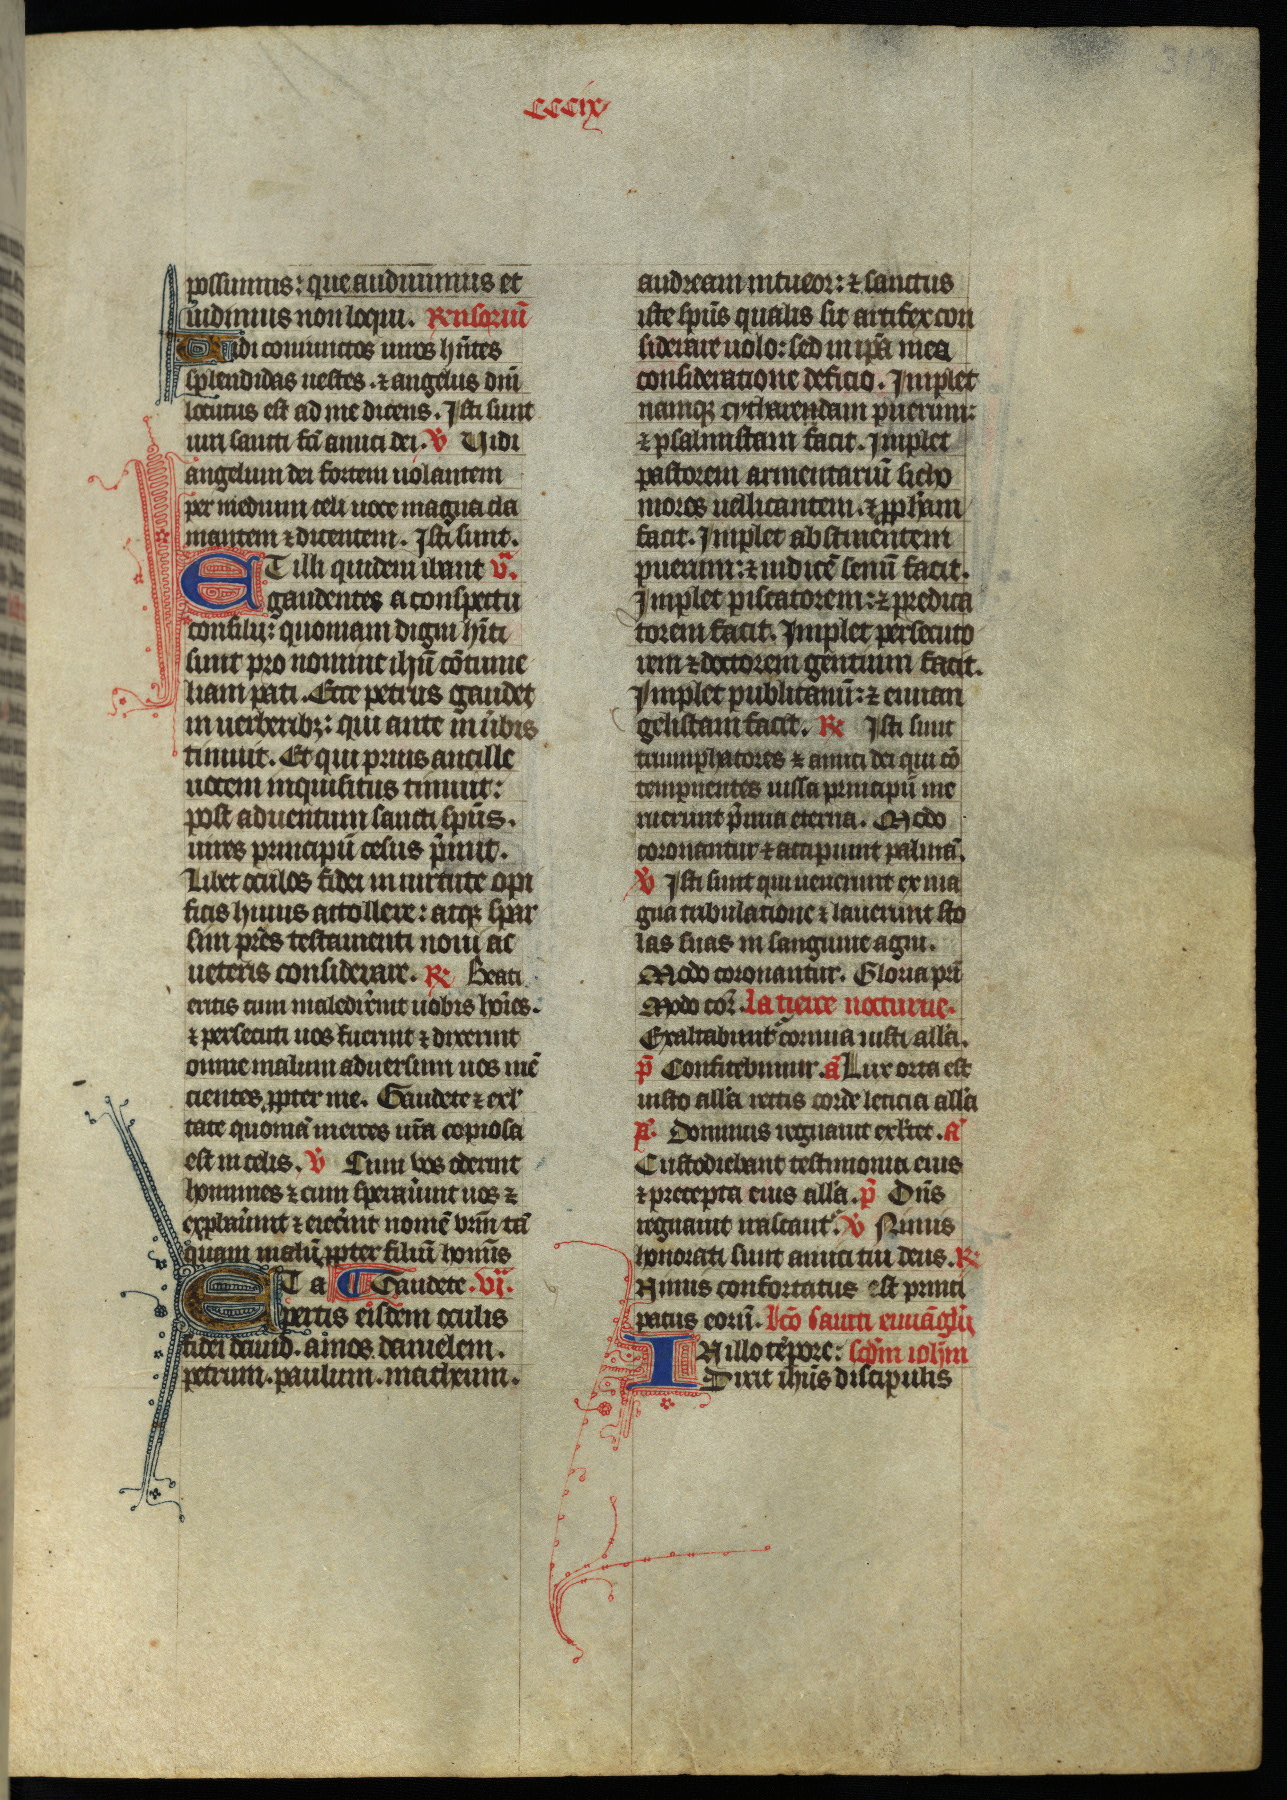 cccix
possumus: que audiuimus et
uidimus non loqui. Rensoriũ
Uidi coniunctos uiros hñtes
splendidas uestes. ⁊ angelus dñi
locutus est ad me dicens. Isti sunt
uiri sancti fc̃i amici dei. V̊ Uidi
angelum dei fortem uolantem
per medium celi uoce magna cla
mantem ⁊ dicentem. Isti sunt.
ET illi quidem ibant v̾.
gaudentes a conspectu
consilii: quoniam digni hĩti
sunt pro nomine ihũ cõtume
liam pati. Ecce petrus gaudet
in uerberibꝫ: qui ante in ũbis
timuit. Et qui prius ancille
uocem inquisitus timuit:
post aduentum sancti spũs.
uires principũ cesus p̃mit.
Libet oculos fidei in uirtute opi
ficis huius attollere: atqꝫ spar
sim prẽs testamenti noui ac
ueteris considerare. R̃ Beati
eritis cum maledix̃int uobis hoĩes.
⁊ persecuti uos fuerint ⁊ dixerint
omne malum aduersum uos mẽ
cientes ꝓpter me. Gaudete ⁊ exl'
tate quoniã merces uña copiosa
est in celis. V̊ Cum vos oderint
homines ⁊ cum sperañint uos ⁊
exprobañint ⁊ eiec̃int nomẽ vrm̃ tã
quam malũ ꝓpter filiũ homĩs
ET a C Gaudete. vi.
pertis eisdem oculis
fidei dauid. amos. danielem.
petrum. paulum. matheum.
andream intueor: ⁊ sanctus
iste spũs qualis sit artifex con
siderare uolo: sed in ip̃a mea
consideratione deficio. Implet
namqꝫ cytharendam puerum:
⁊ psalmistam facit. Implet
pastorem armentariũ sicho
mores uellicantem. ⁊ ꝓpham
facit. Implet abstinentem
puerum: ⁊ iudicẽ senũ facit.
Implet piscatorem: ⁊ predica
torem facit. Implet persecuto
rem ⁊ doctorem gentium facit.
Implet publicanũ: ⁊ euuan
gelistam facit. R̃ Isti sunt
triumphatores ⁊ amici dei qui cõ
tempnentes iussa principũ me
ruerunt p̃mia eterna. Modo
coronantur ⁊ accipiunt palmã.
V̊ Isti sunt qui uenerunt ex ma
gna tribulatione ⁊ lauerunt sto
las suas in sanguine agni.
Modo coronantur. Gloria pr̃i
Modo cor̃. La tierce nocturne.
Exaltabunt' cornua iusti all'a.
p̃ Confitebimur. ã Lux orta est
iusto all'a rectis corde leticia all'a
p̃. Dominus regnauit exl'tet. ã
Custodiebant testimonia eius
⁊ precepta eius all'a. p̃ Dñs
regnauit irascant'. V̊ Nimis
honorati sunt amici tui deus. R̃
Nimis confortatus est princi
patus eorũ. Lc̃o sancti euuãglii
IN illo tẽpore: scd̃m ioh̃m
Dixit ihũs discipulis